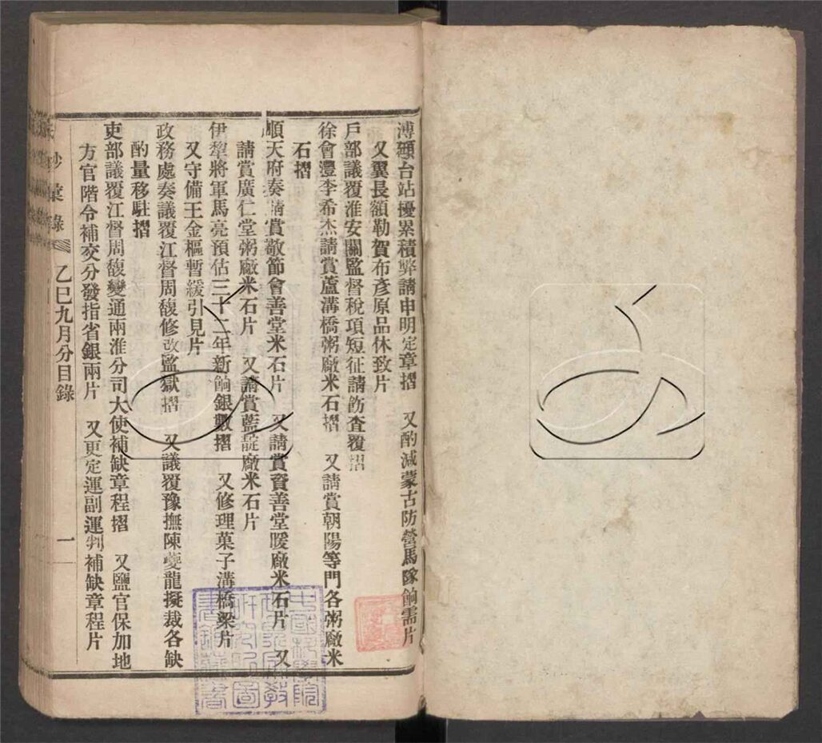 溥頲台站擾累積弊請申明定章摺　又酌減蒙古防營馬隊餉需片
又翼長額勒賀布彥原品休致片
戶部議覆淮安關監督稅項短征請飭查覆摺
徐會灃李希杰請賞蘆溝橋粥廠米石摺　又請賞朝陽等門各粥廠米
石摺
順天府奏請賞敬節會善堂米石片　又請賞資善堂暖廠米石片　又
請賞廣仁堂粥廠米石片　又請賞藍靛廠米石片
伊犂將軍馬亮預估三十二年新餉銀數摺　又修理菓子溝橋梁片
又守備王金樞暫緩引見片
政務處奏議覆江督周馥修改監獄摺　又議覆豫撫陳夔龍擬裁各缺
酌量移駐摺
吏部議覆江督周馥變通兩淮分司大使補缺章程摺　又鹽官保加地
方官階令補交分發指省銀兩片　又更定運副運判補缺章程片
乙巳九月分目錄　一